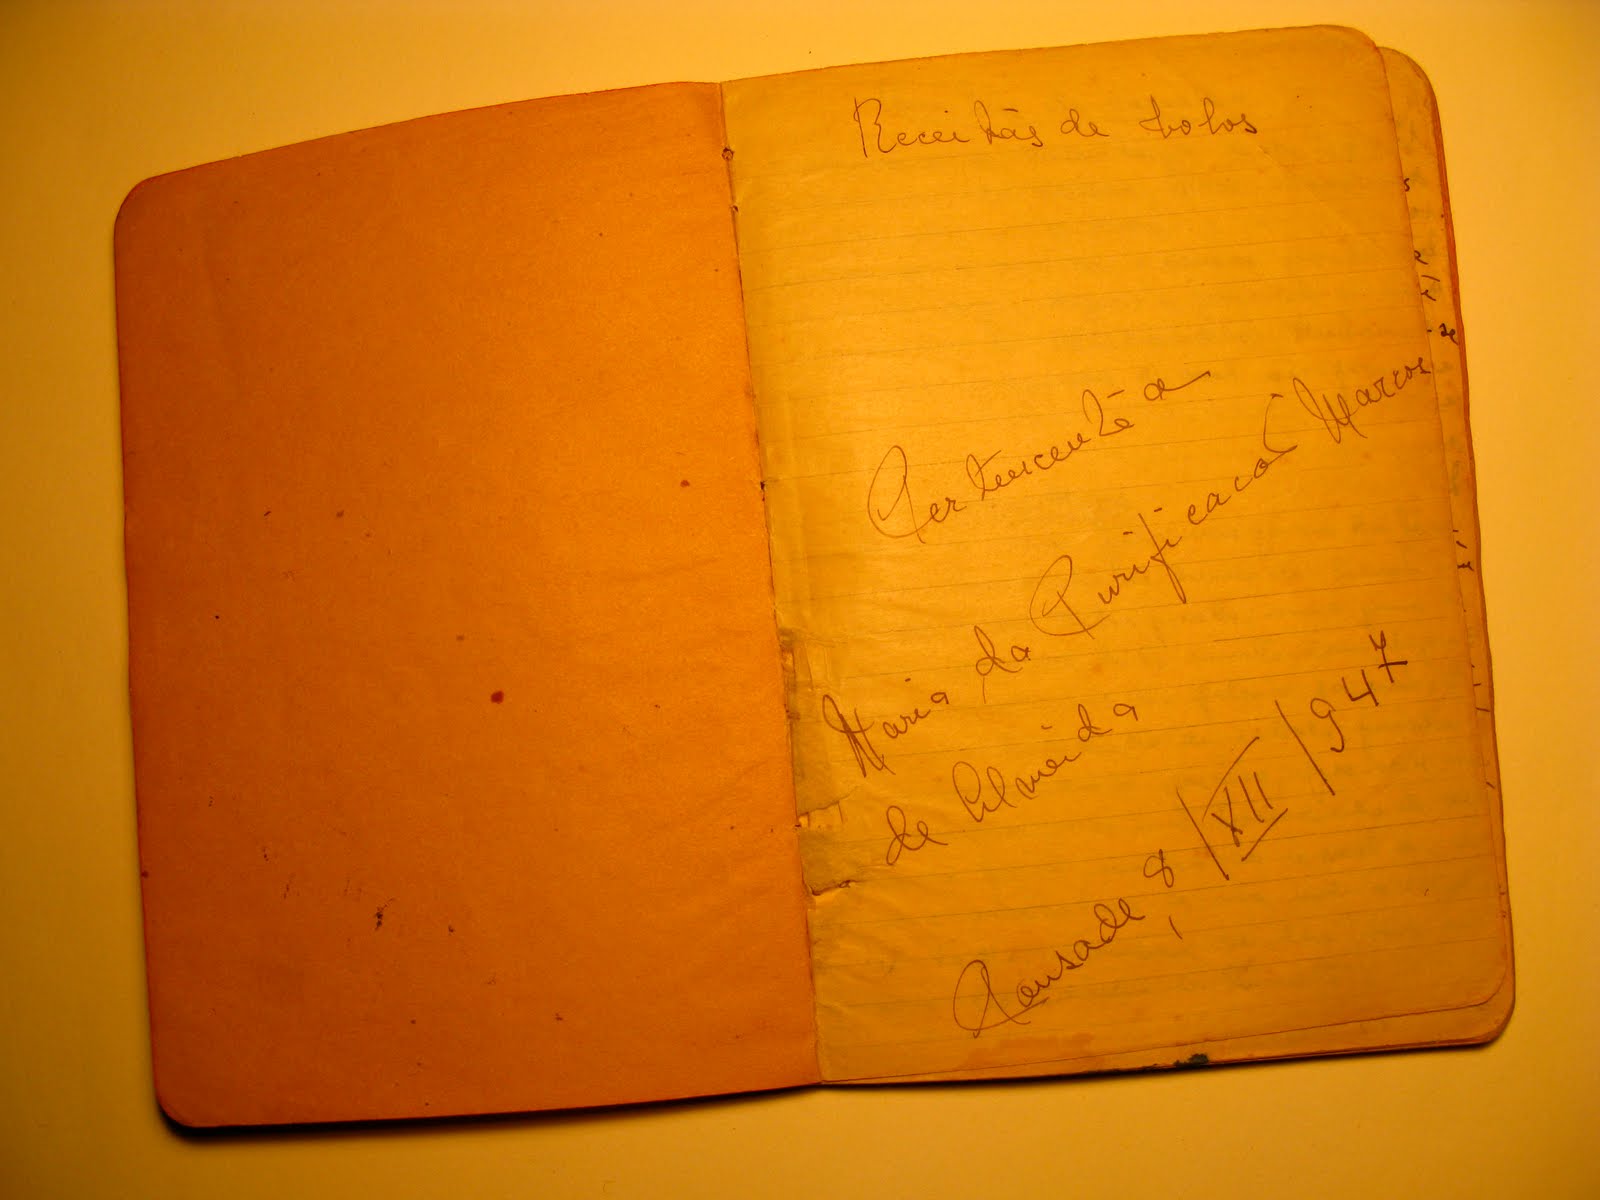 Receitas de bolos
Pertencente a
Maria da Purificacão Marcos
de Almeida
Pousade, 8/XII/947